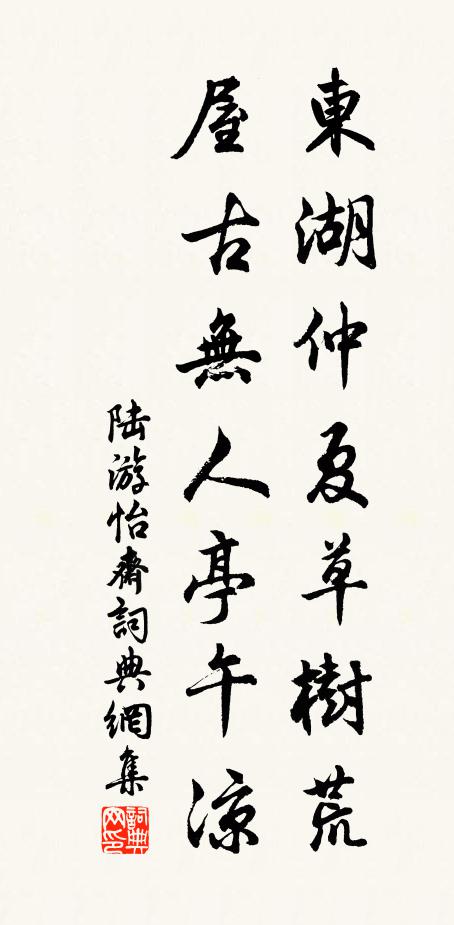 東湖仲夏草樹荒
屋古無人亭午涼
陆游怡齋詞典網集
詞典网印